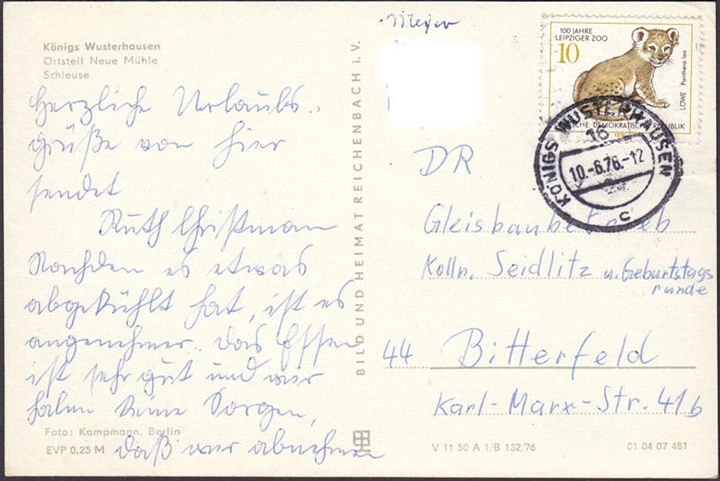 Königs Wusterhausen
Ortsteil Neue Mühle
Schleuse
Herzliche Urlaubs..
grüße von hier
sendet
Ruth Christman
Nachdem es etwas
abgekühlt hat, ist es
angenehmer. Das Essen
ist sehr gut und wir
haben keine Sorgen,
daß wir abnehmen
Foto: Kampmann, Berlin
EVP 0,25 M
BILD UND HEIMAT REICHENBACH i. V.
100 JAHRE
LEIPZIGER ZOO
10
LÖWE Panthera leo
DEMOKRATISCHE REPUBLIK
KÖNIGS WUSTERHAUSEN
16
10.-6.78.-12
c
DR
Gleisbaubetrieb
Kolln. Seidlitz u. Geburtstags
runde
44 Bitterfeld
Karl-Marx-Str. 41b
V 11 50 A 1/B 132/76 01 04 07 481